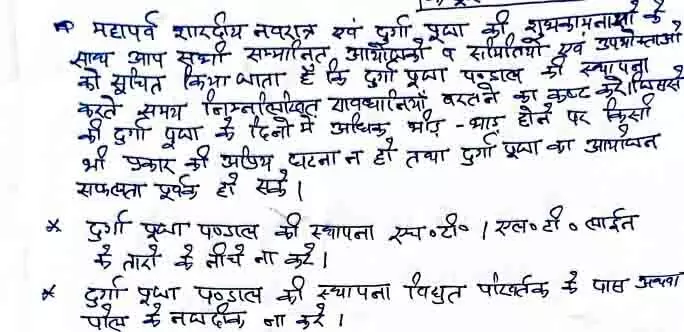 महापर्व शारदीय नवरात्र एवं दुर्गा पूजा की शुभकामनाओं के
साथ आप सभी सम्मानित आयोजको व समितियों एवं उपभोक्ताओ
को सूचित किया जाता है कि दुर्गा पूजा पण्डाल की स्थापना
करते समय निम्नलिखित सावधानियाँ बरतने का कष्ट करे। जिससे
की दुर्गा पूजा के दिनो मे अधिक भीड़-भाड़ होने पर किसी
भी प्रकार की अप्रिय घटना न हो तथा दुर्गा पूजा का आयोजन
सफलता पूर्वक हो सके।
* दुर्गा पूजा पण्डाल की स्थापना एच०टी०/एल०टी० लाईन
के तारो के नीचे ना करे।
* दुर्गा पूजा पण्डाल की स्थापना विधुत परिवर्तक के पास अथवा
पोल के नजदीक ना करे।